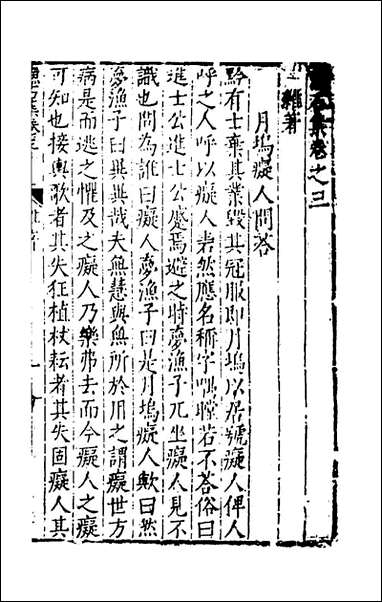 石集卷之三
雜著
月塢癡人問答
黔有士棄其業毀其冠服即月塢以居號癡人俾人
呼之人呼以癡人若然應名稱字嘿瞠若不荅俗曰
進士公進士公蹙焉避之時夢漁子兀坐癡人見不
識也問為誰曰癡人夢漁子曰是月塢癡人歟曰然
夢漁子曰異異哉夫無慧與無所於用之謂癡世方
病是而逃之懼及之癡人乃樂弗去而今癡人之癡
可知也接輿歌者其失狂植杖耘者其失固癡人其